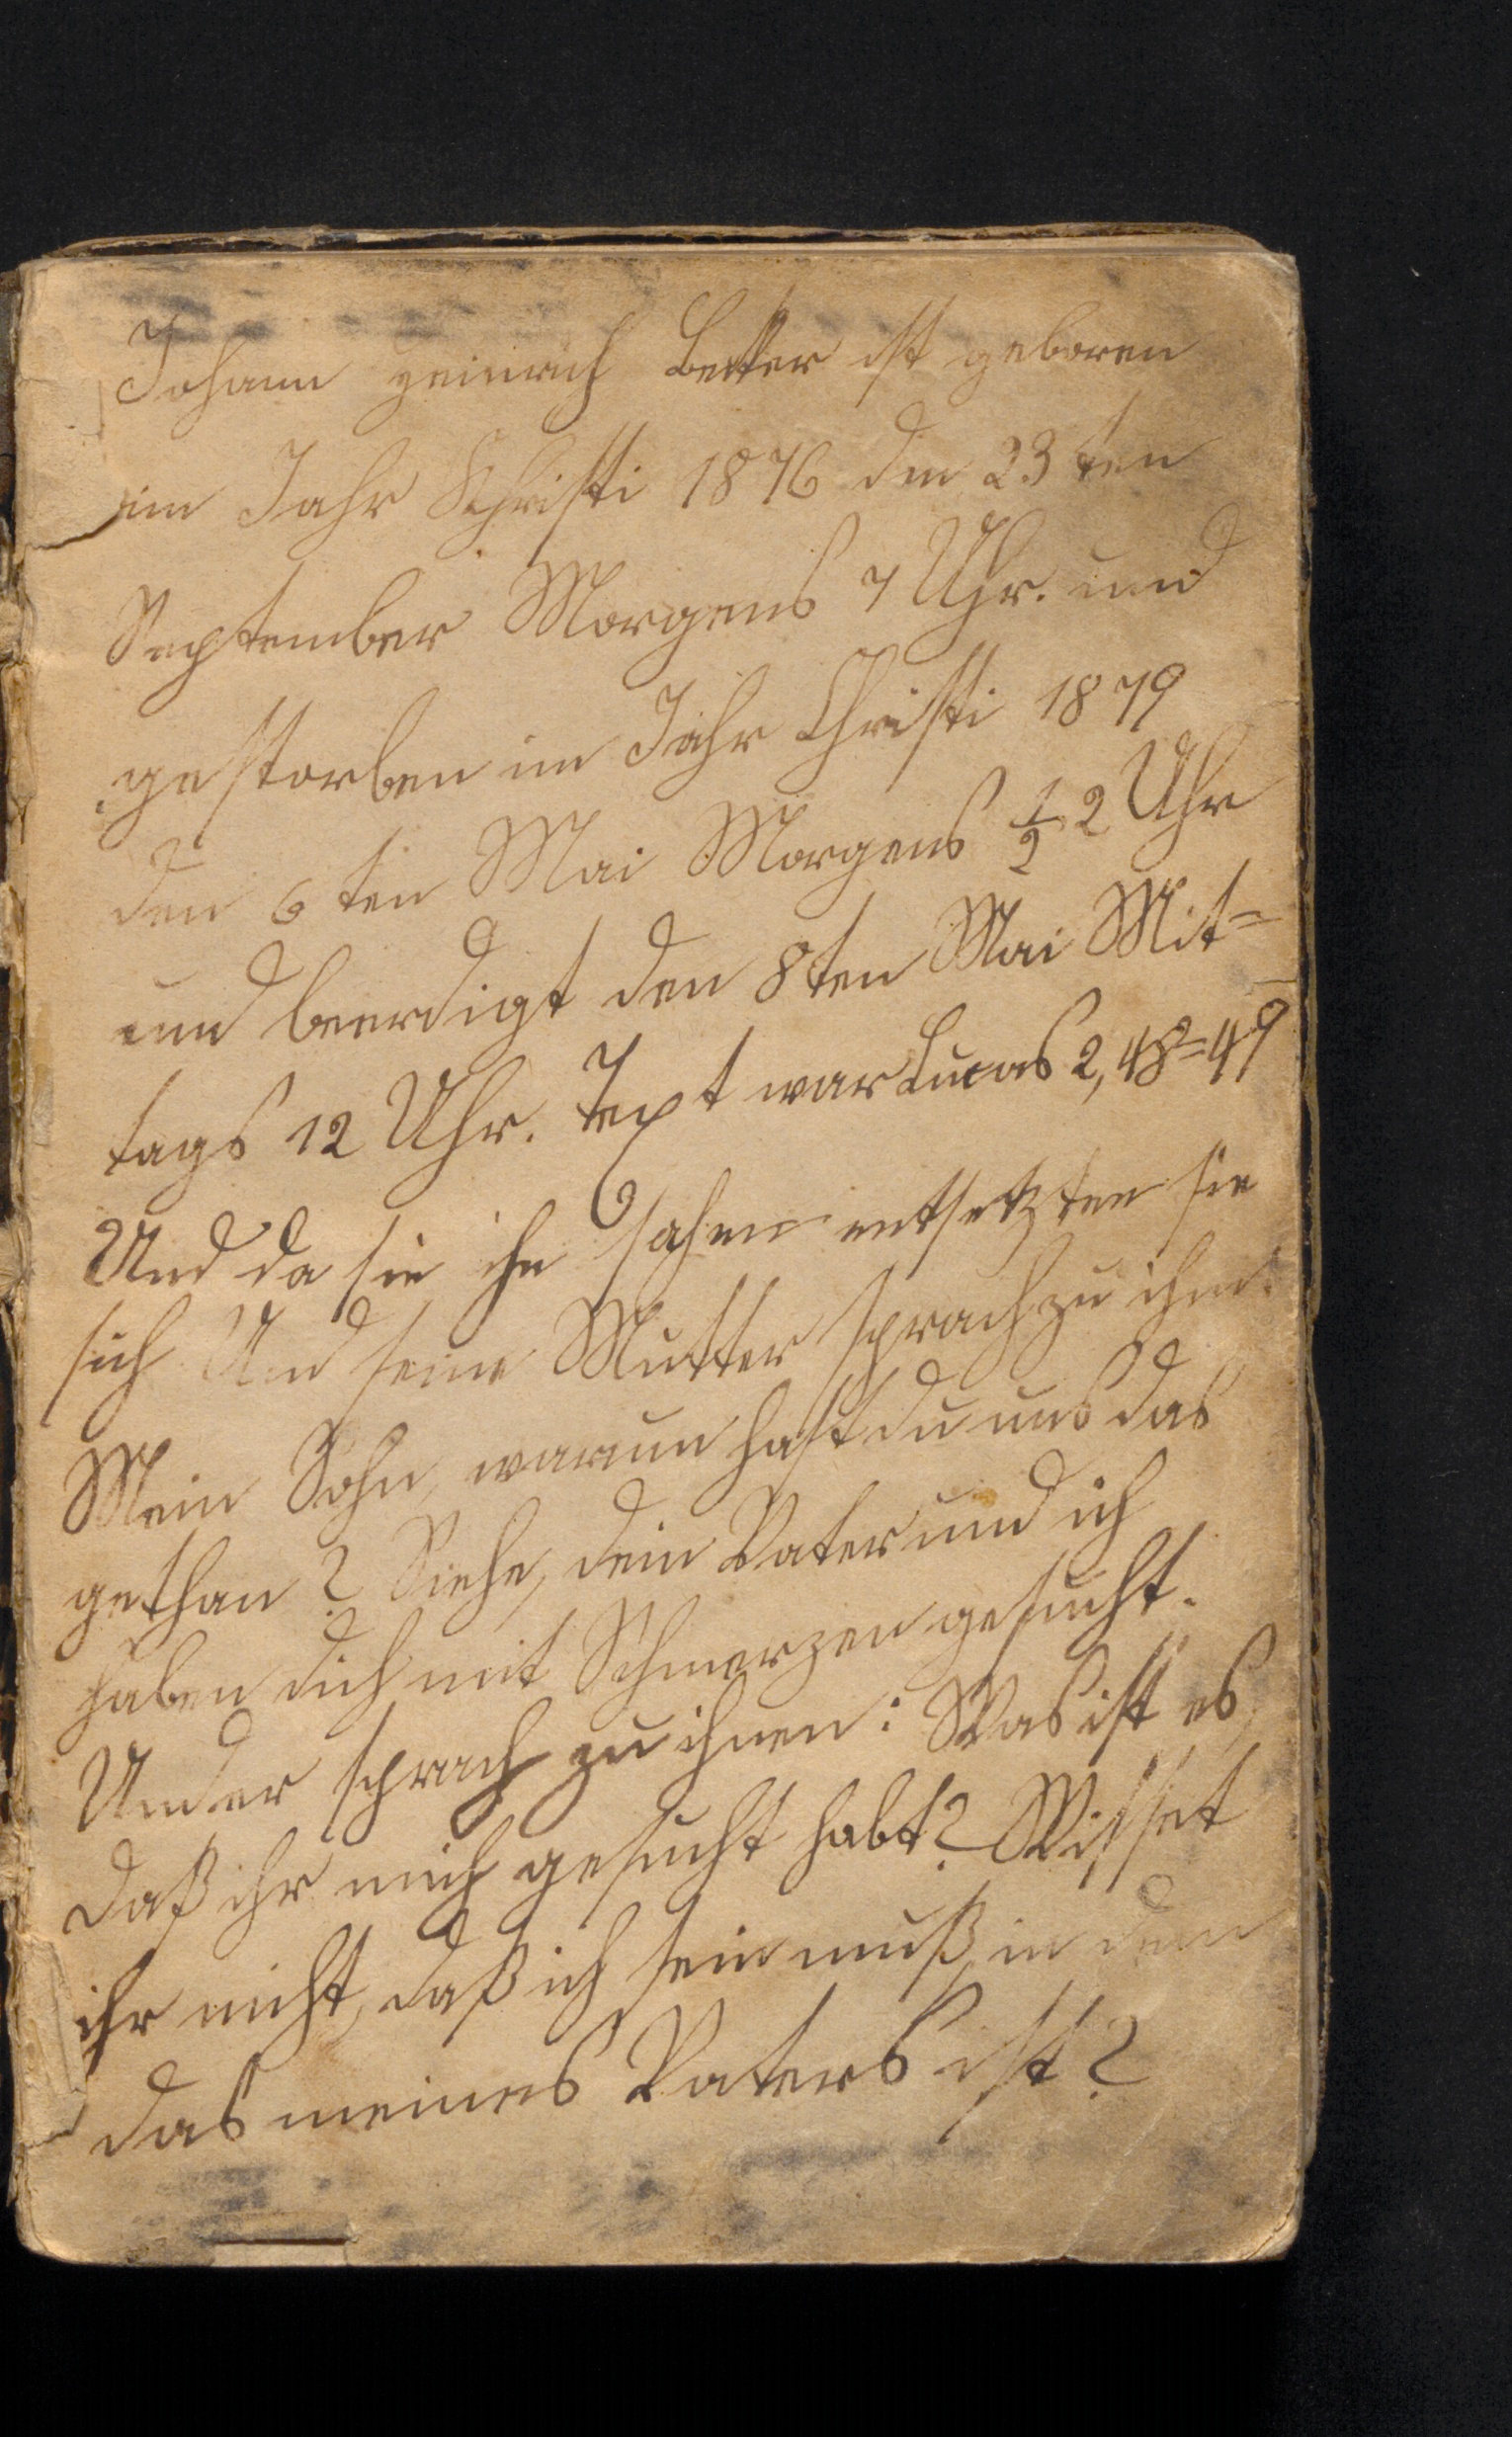 Johann Heinrich Better ist geboren
im Jahr Christi 1876 den 23ten
September Morgens 7 Uhr. und
gestorben im Jahr Christi 1879
den 6ten Mai Morgens ½ 2 Uhr
und beerdigt den 8ten Mai Mit=
tags 12 Uhr. Text war Lucas 2, 48=49
Und da sie ihn sahen entsetzten sie
sich Und seine Mutter sprach zu ihm:
Mein Sohn, warum hast du uns das
gethan? Siehe, dein Vater und ich
haben dich mit Schmerzen gesucht.
Und er sprach zu ihnen: Was ist es,
daß ihr mich gesucht habt? Wisset
ihr nicht, daß ich sein muß in dem
das meines Vaters ist?